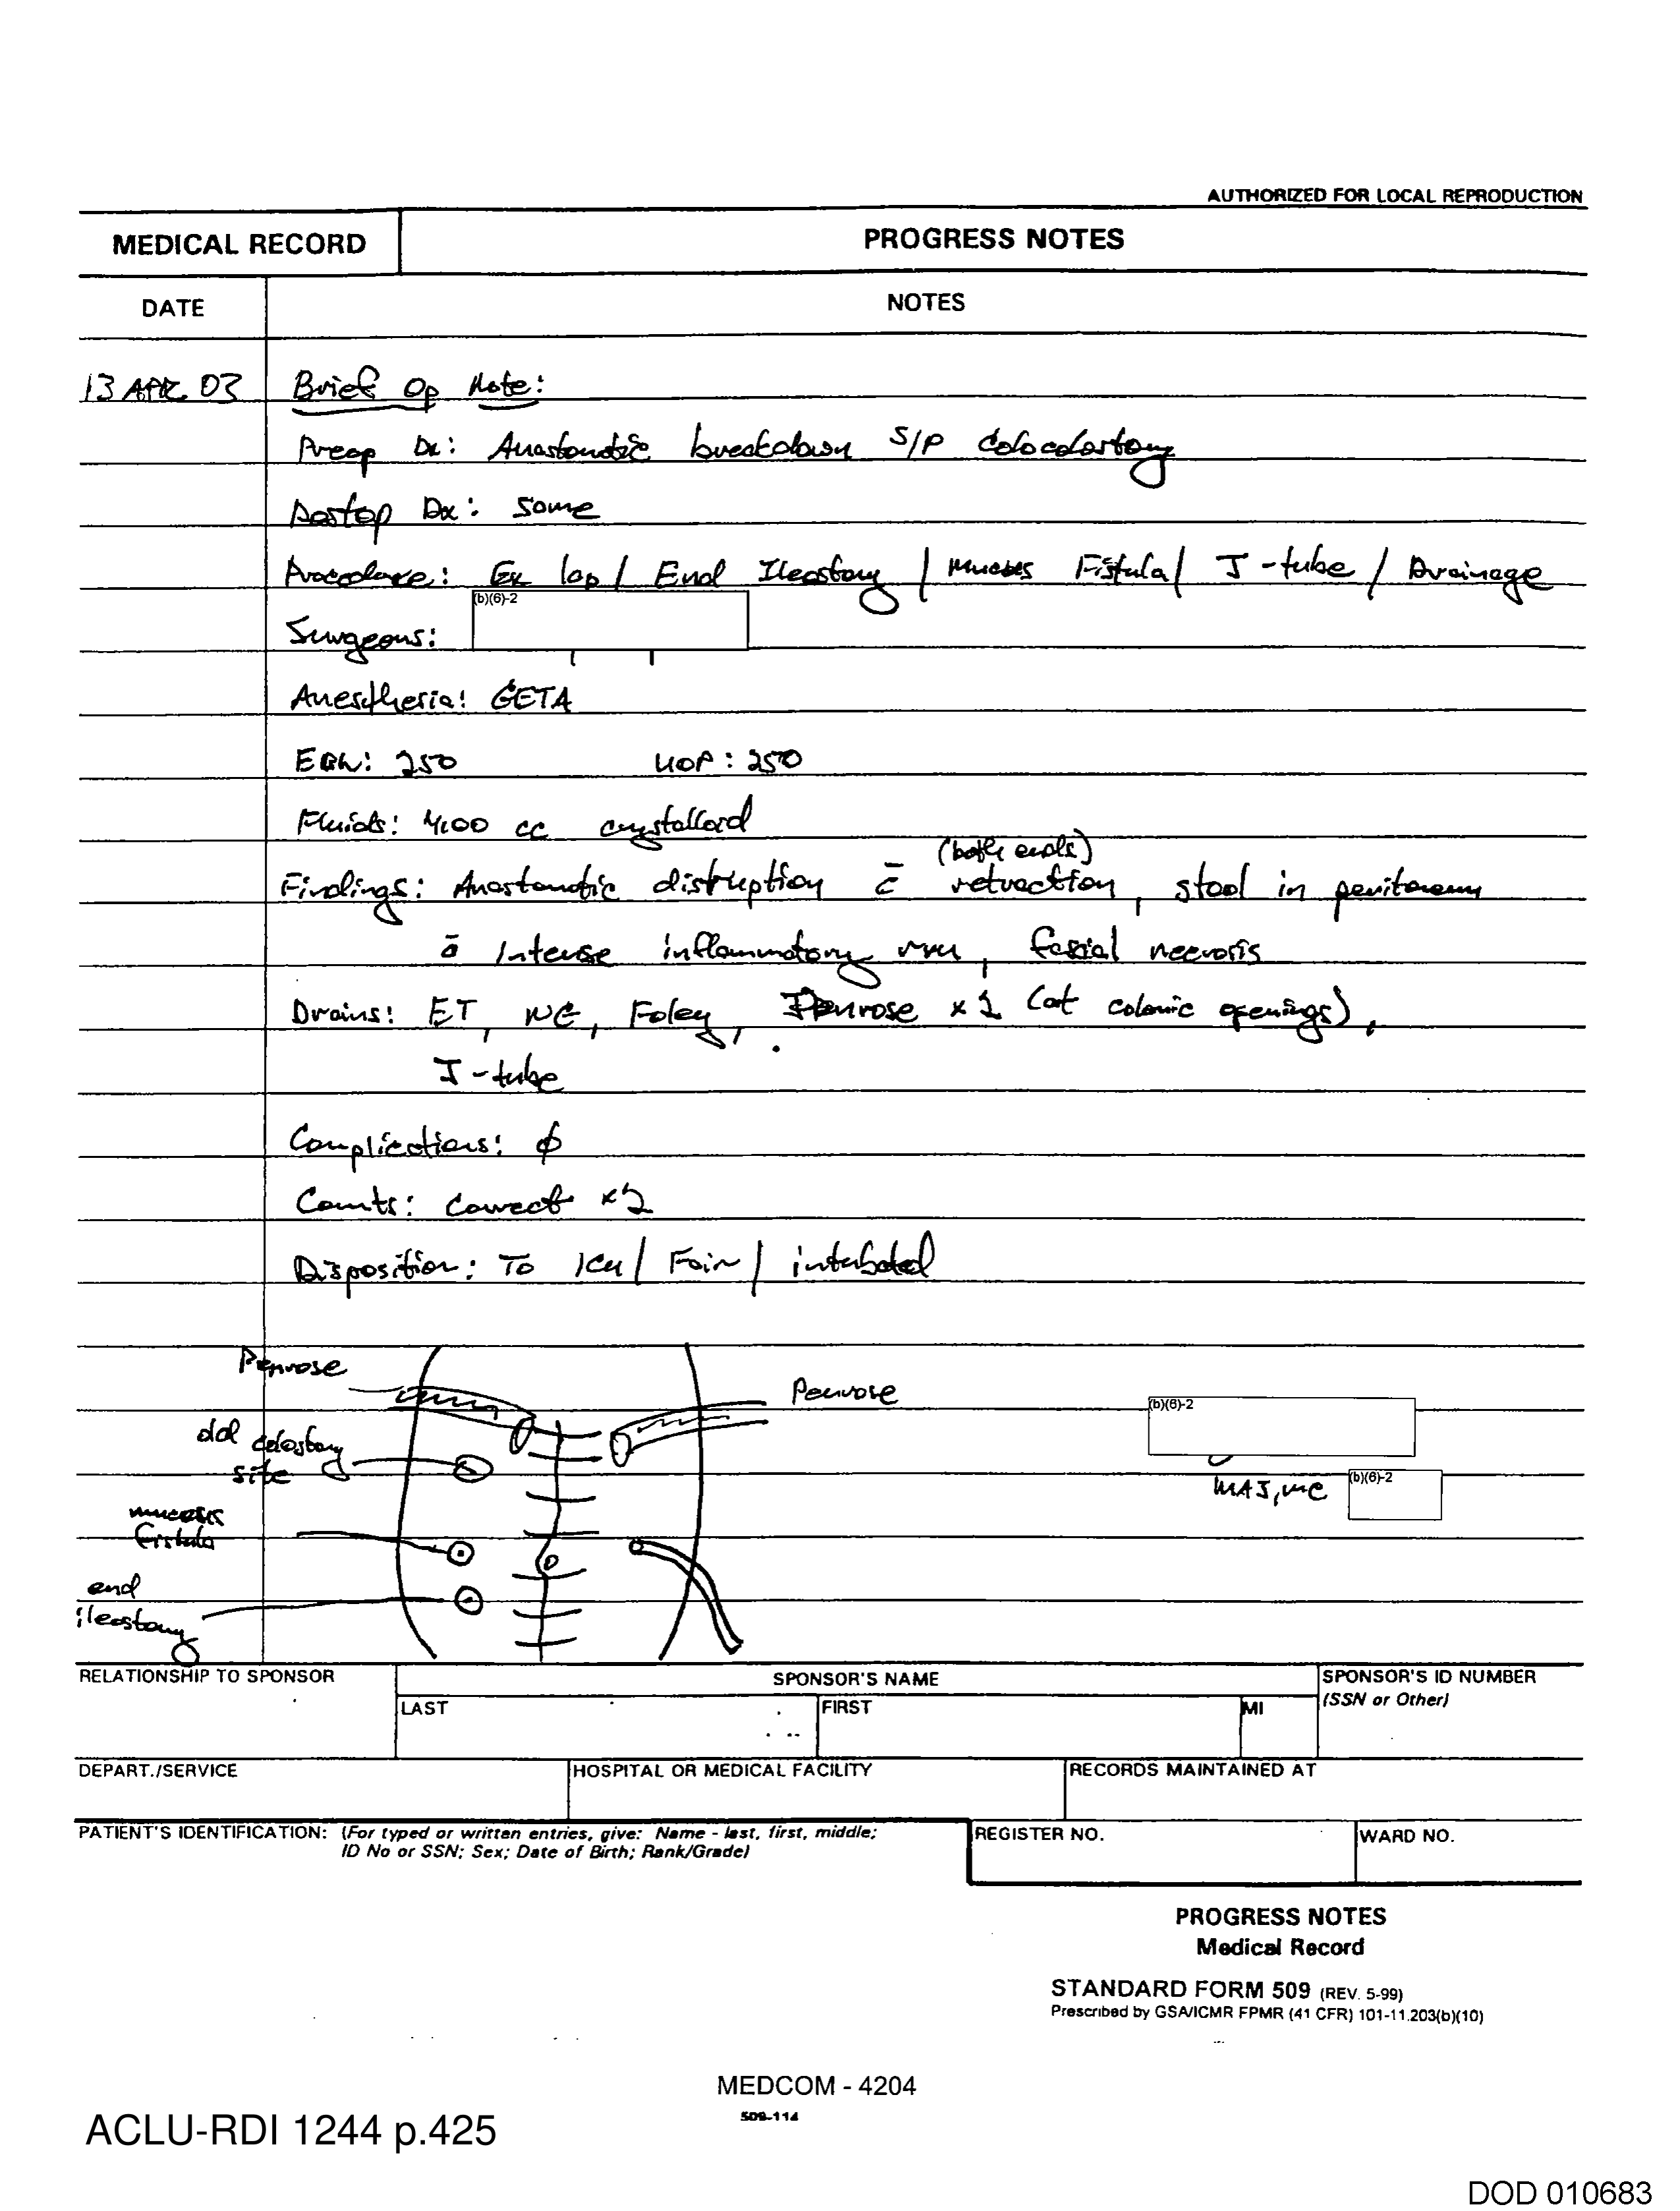 AUTHORIZED FOR LOCAL REPRODUCTION
MEDICAL RECORD
PROGRESS NOTES
DATE
NOTES
13 APR 03
Brief Op Note:
Preop Dx: Anastomotic breakdown S/P Colocolostomy
Postop Dx: Same
Procedure: Ex lap / End Ileostomy / Mucous Fistula / J-tube / Drainage
(b)(6)-2
Surgeons:
Anesthesia: GETA
EBL: 250 UOP: 250
Fluids: 4100 cc crystalloid
(both ends)
Findings: Anastomotic distruption c̄ retraction, stool in peritoneum
Intense inflammatory rxn, fascial necrosis
Drains: ET, NG, Foley, Penrose x 2 (at colonic openings),
J-tube
Complications: ϕ
Counts: Correct x2
Disposition: To ICU / Fair / intubated
Penrose
Penrose
(b)(6)-2
old colostomy
site
MAJ, MC
(b)(6)-2
mucous
fistula
end
ileostomy
RELATIONSHIP TO SPONSOR
SPONSOR'S NAME
SPONSOR'S ID NUMBER
(SSN or Other)
LAST
FIRST
MI
DEPART./SERVICE
HOSPITAL OR MEDICAL FACILITY
RECORDS MAINTAINED AT
PATIENT'S IDENTIFICATION: (For typed or written entries, give: Name - last, first, middle;
ID No or SSN; Sex; Date of Birth; Rank/Grade)
REGISTER NO.
WARD NO.
PROGRESS NOTES
Medical Record
STANDARD FORM 509 (REV. 5-99)
Prescribed by GSA/ICMR FPMR (41 CFR) 101-11.203(b)(10)
MEDCOM - 4204
509-114
ACLU-RDI 1244 p.425
DOD 010683